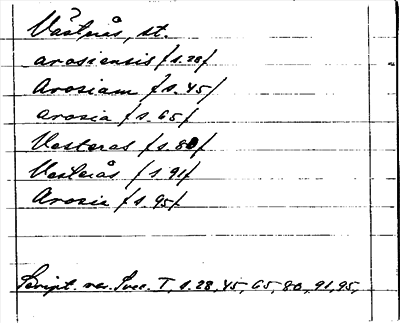 Västerås, st.
arosiensis /s. 28/
Arosiam /s. 45/
arosia /s. 65/
Vesteras /s. 80/
Westerås /s. 91/
Arosie /s. 95/
Script. rer. Svec. I, s. 28, 45, 65, 80, 91, 95,